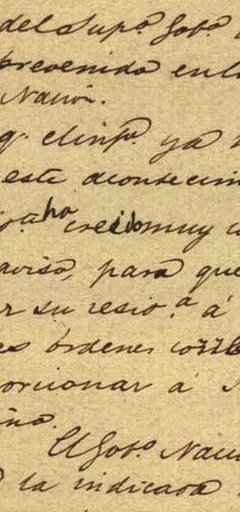 del Sup.º Gob.º
prevenido en l
Nación.
q. el inf.º ya
este acontecim
ha creido muy c
aviso, para que
r su resid.ª á
es órdenes corre
orcionar á
ña.
El Gob.º Naci
la indicada